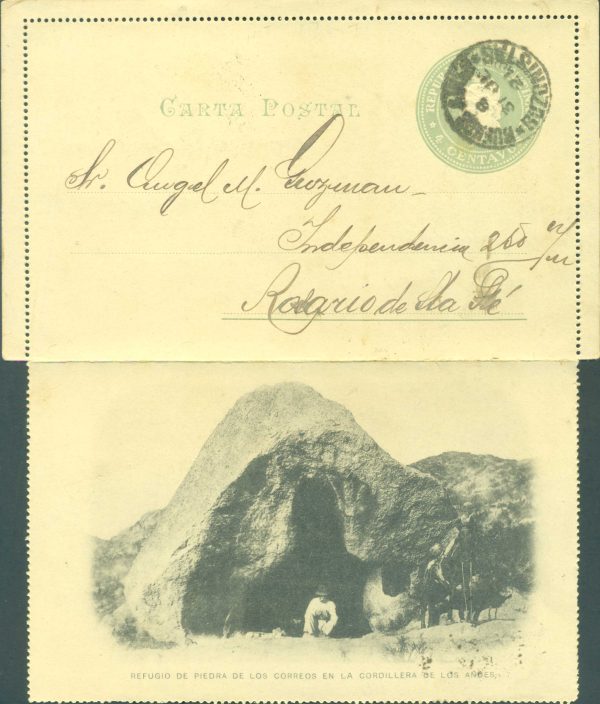 CARTA POSTAL
REPUB
4 CENTAV
BUENOS AIRES
BUZONISTAS
Sr. Angel M. Guzman
Independencia 260
Rosario de Sta Fé
REFUGIO DE PIEDRA DE LOS CORREOS EN LA CORDILLERA DE LOS ANDES.